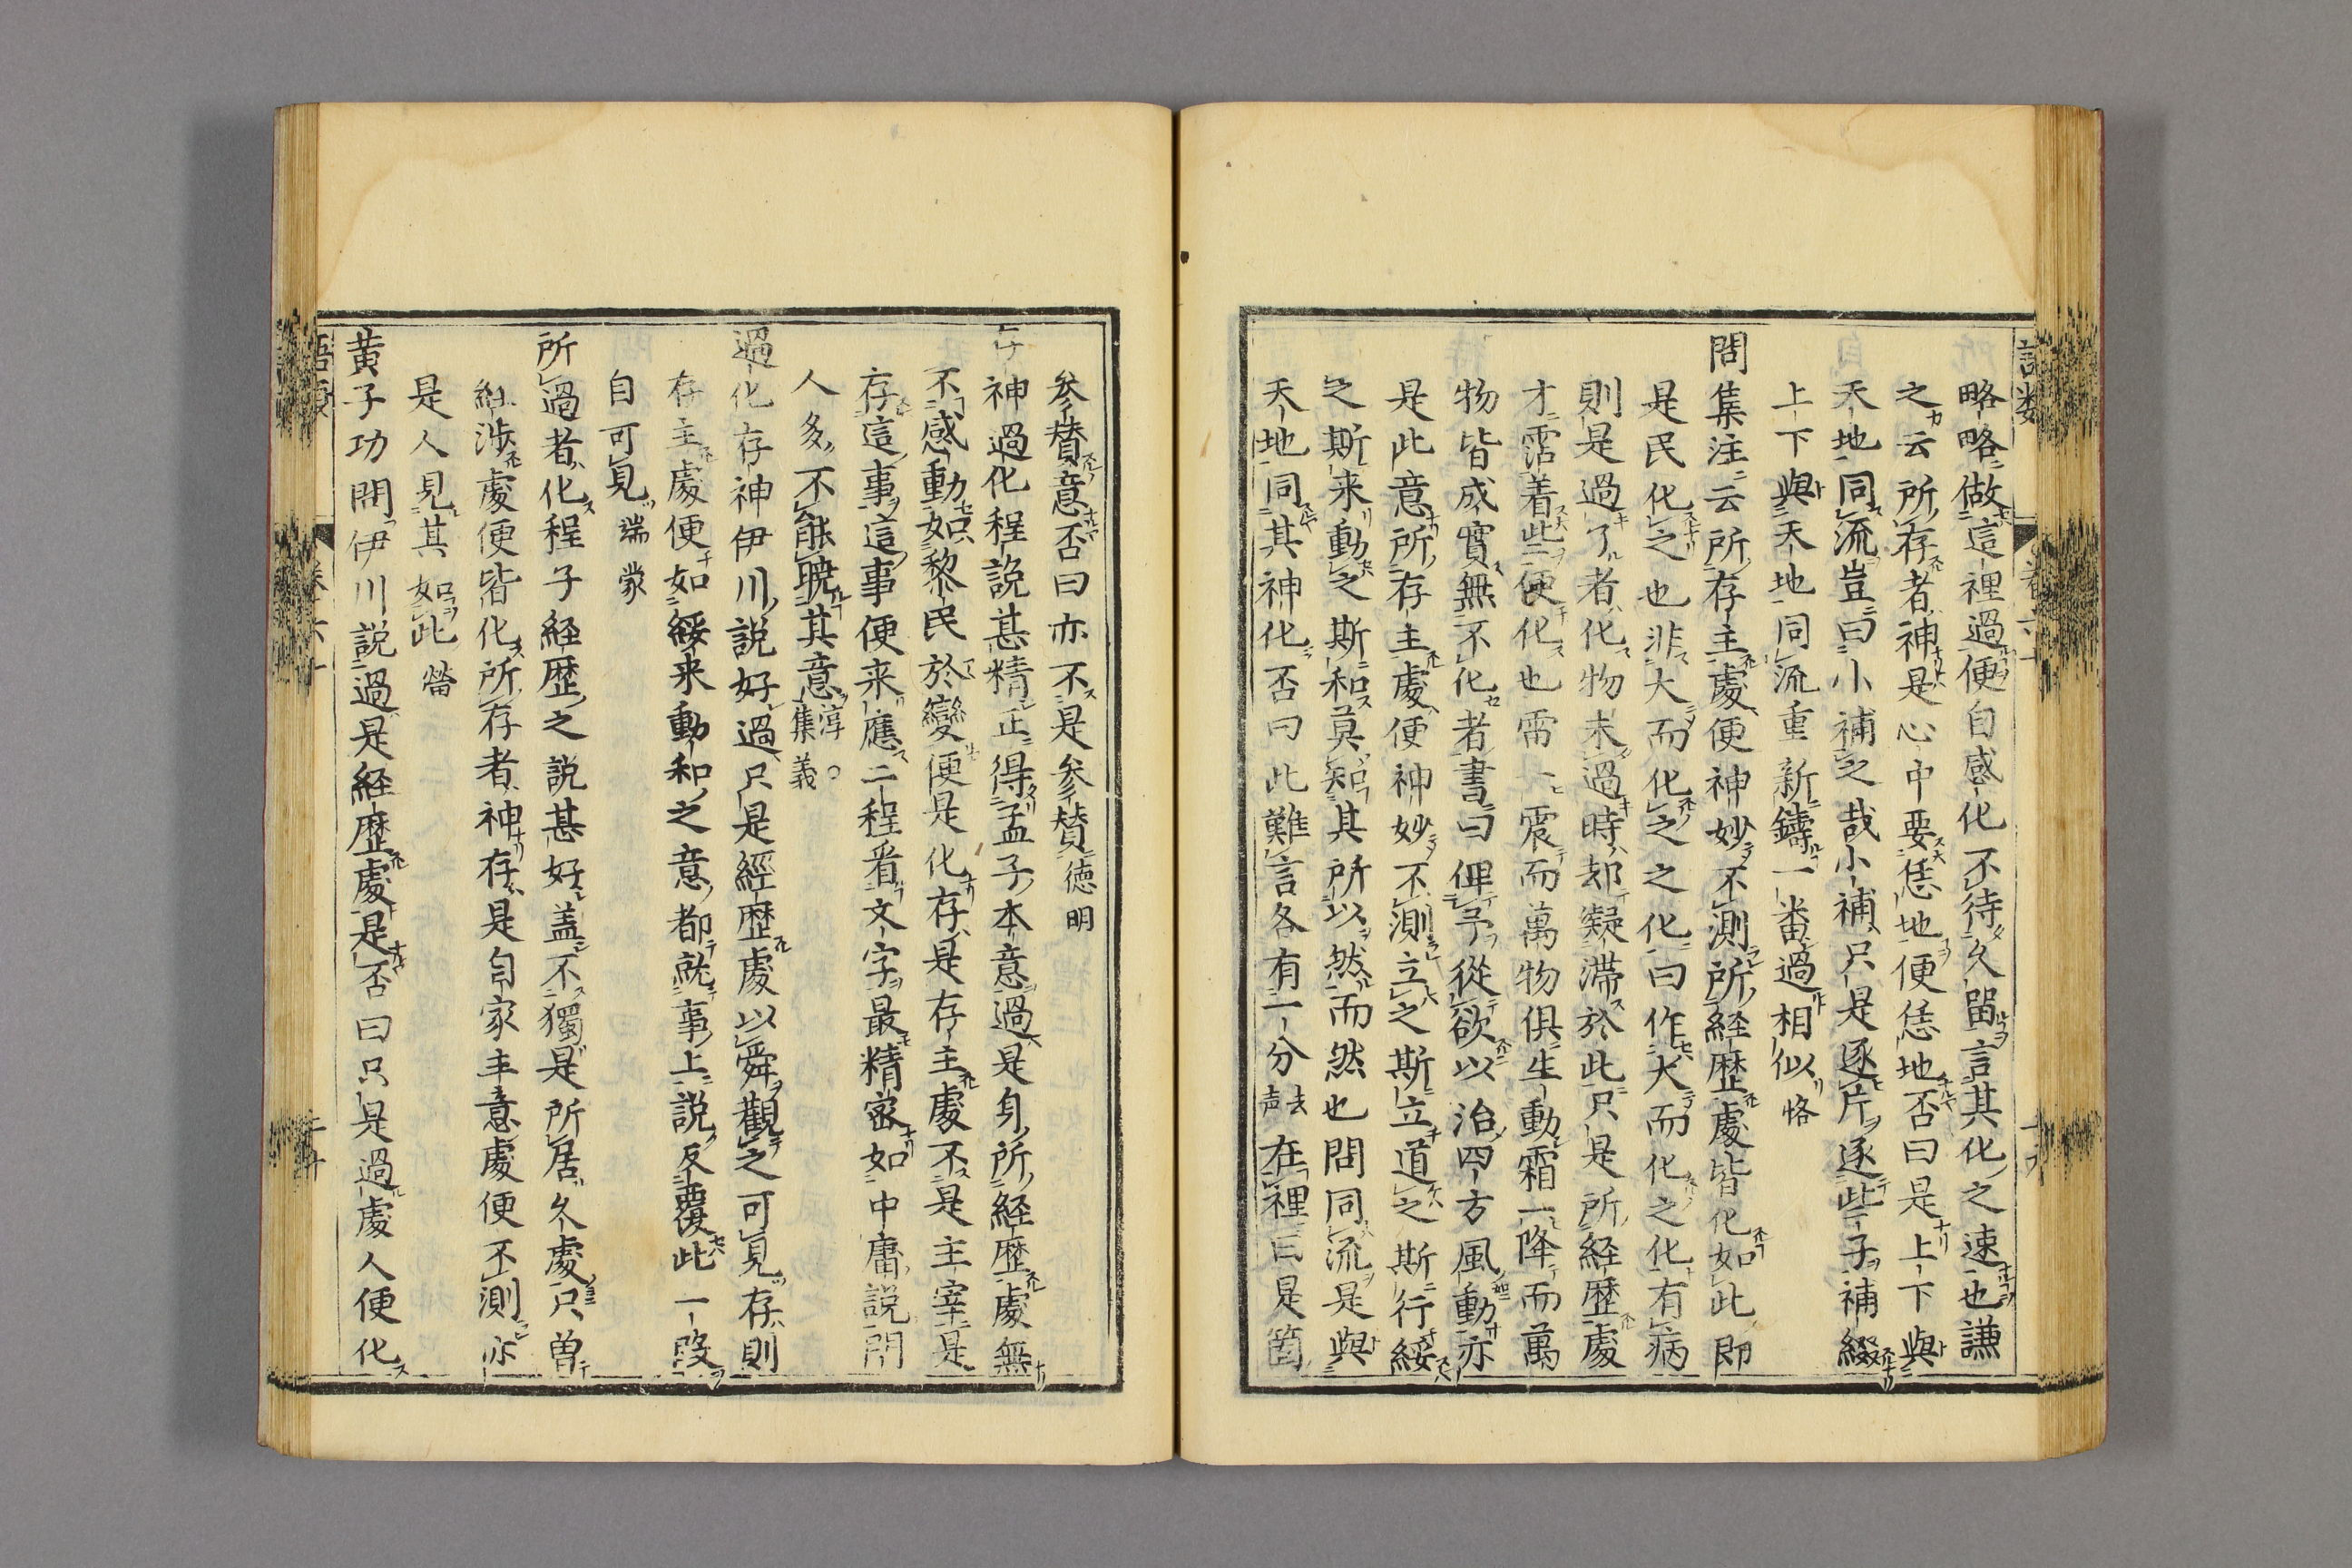 略略做這裡過便自感化不待久留言其化之速也謙
之云所存者神是心中要恁地便恁地否曰是上下與
天地同流豈曰小補之哉小補只是逐片逐些子補綴
上下與天地同流重新鑄一番過相似恪
問集注云所存主處便神妙不測所経歴處皆化如此即
是民化之也非大而化之之化曰作大而化之之化有病
則是過了者化物未過時却凝滞於此只是所経歴處
才霑着些便化也雷一震而萬物俱生動霜一降而萬
物皆成實無不化者書曰俾予從欲以治四方風動亦
是此意所存主處便神妙不測立之斯立道之斯行綏
之斯来動之斯和莫知其所以然而然也問同流是與
天地同其神化否曰此難言各有一分去声在裡曰是箇
参賛意否曰亦不是参賛徳明
存神過化程説甚精正得孟子本意過是身所経歴處無
不感動如黎民於變便是化存是存主處不是主宰是
存這事這事便来應二程看文字最精密如中庸説門
人多不能暁其意淳○集義
過化存神伊川説好過只是經歴處以舜觀之可見存則
存主處便如綏来動和之意都就事上説反覆此一段
自可見端蒙
所過者化程子経歴之説甚好盖不獨是所居久處只曽
経渉處便皆化所存者神存是自家主意處便不測亦
是人見其如此㽦
黄子功問伊川説過是経歴處是否曰只是過處人便化